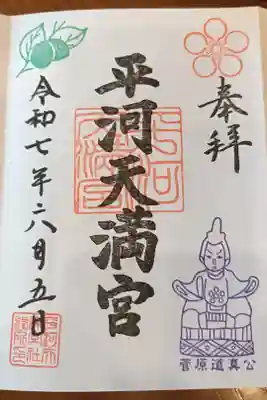 奉拝
平河天満宮
令和七年六月五日
菅原道真公